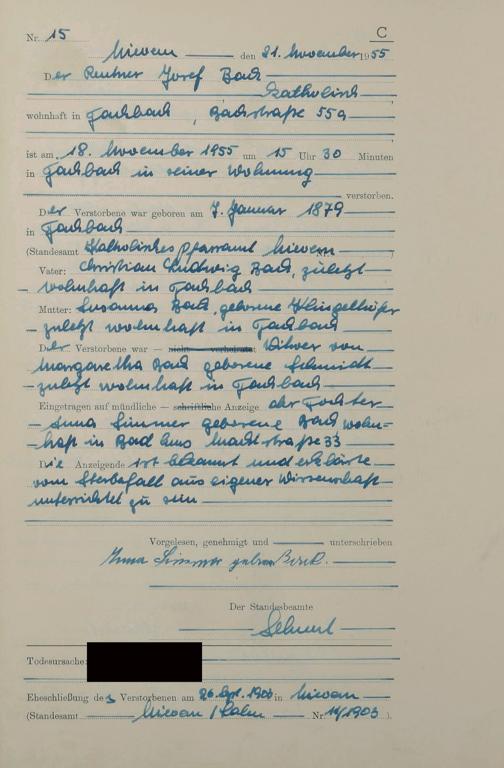 Nr. 15 C
Nievern den 21. November 1955
Der Rentner Josef Bach
Katholisch
wohnhaft in Fachbach, Bachstraße 55a
ist am 18. November 1955 um 15 Uhr 30 Minuten
in Fachbach in seiner Wohnung
verstorben.
Der Verstorbene war geboren am 7. Januar 1879
in Fachbach
(Standesamt Katholisches Pfarramt Nievern
Vater: Christian Ludwig Bach, zuletzt
wohnhaft in Fachbach
Mutter: Susanna Bach, geborene Klingelhöfer
zuletzt wohnhaft in Fachbach
Der Verstorbene war — nicht — verheiratet Witwer von
Margaretha Bach geborene Schmidt
zuletzt wohnhaft in Fachbach
Eingetragen auf mündliche — schriftliche Anzeige der Tochter
Anna Simmer geborene Bach wohn=
haft in Bad Ems Marktstraße 33
Die Anzeigende ist bekannt und erklärte
vom Sterbefall aus eigener Wissenschaft
unterrichtet zu sein
Vorgelesen, genehmigt und unterschrieben
Anna Simmer geborene Bach.
Der Standesbeamte
Todesursache:
Eheschließung des Verstorbenen am 26. Sept. 1903 in Nievern
(Standesamt Nievern / Lahn Nr. 11/1903 ).